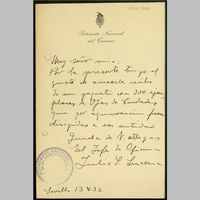 Patronato Nacional
del Turismo
Muy señor mio:
Por la presente tengo el
gusto de acusarle recibo
de un paquete con 300 ejem
plares de Ojos de Ciudades
que por equivocacion fueron
dirigidos a esa entidad
Queda de V. attago
El Jefe de Oficina
Julio S. Lucena
Sevilla 13.V.32